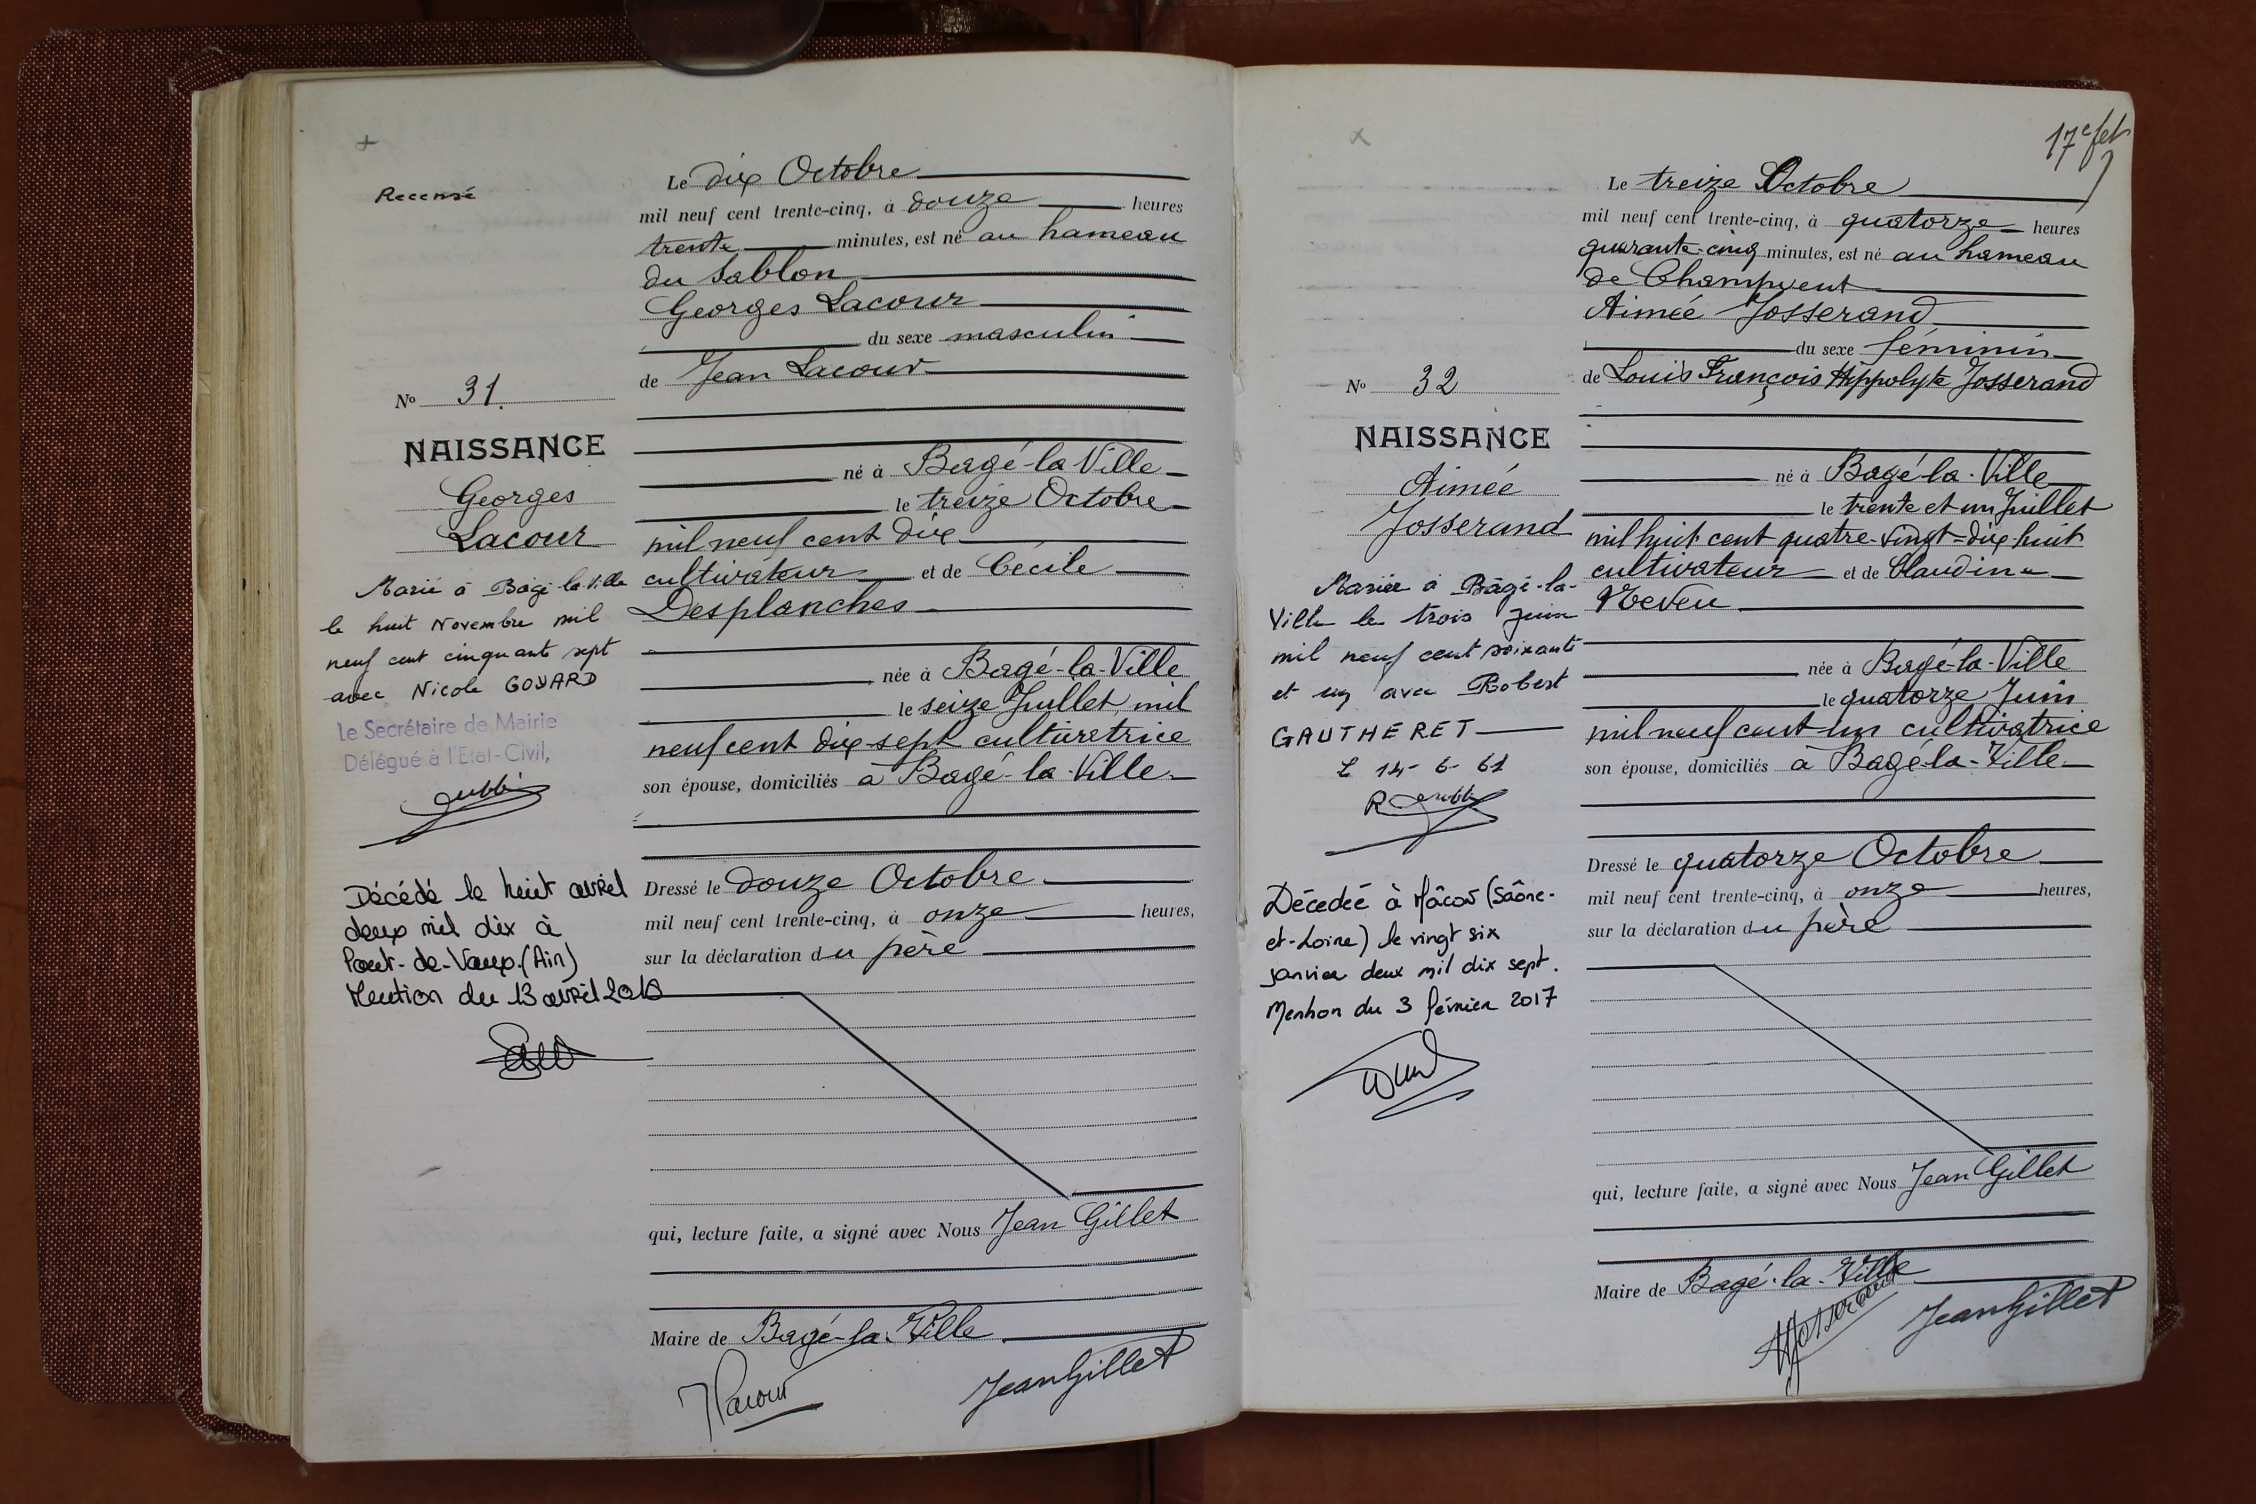 +
Recensé
Le dix Octobre
mil neuf cent trente-cinq, à douze heures
trente minutes, est né au hameau
du Sablon
Georges Lacour
du sexe masculin
de Jean Lacour
No 31.
NAISSANCE
Georges
Lacour
né à Bagé-la-Ville
le treize Octobre
mil neuf cent dix
cultivateur et de Cécile
Desplanches
née à Bagé-la-Ville
le seize Juillet mil
neuf cent dix-sept cultivatrice
son épouse, domiciliés à Bagé-la-Ville
Marié à Bâgé-la-Ville
le huit Novembre mil
neuf cent cinquante sept
avec Nicole GOYARD
Le Secrétaire de Mairie
Délégué à l'Etat-Civil,
Décédé le huit avril
deux mil dix à
Pont-de-Vaux (Ain)
Mention du 13 avril 2010
Dressé le douze Octobre
mil neuf cent trente-cinq, à onze heures,
sur la déclaration du père
qui, lecture faite, a signé avec Nous Jean Gillet
Maire de Bagé-la-Ville
JLacour
Jean Gillet
x
17e fet
Le treize Octobre
mil neuf cent trente-cinq, à quatorze heures
quarante-cinq minutes, est né au hameau
de Champvent
Aimée Josserand
du sexe féminin
de Louis François Hippolyte Josserand
No 32
NAISSANCE
Aimée
Josserand
né à Bagé-la-Ville
le trente et un Juillet
mil huit cent quatre-vingt-dix huit
cultivateur et de Claudine
Neveu
née à Bagé-la-Ville
le quatorze Juin
mil neuf cent un cultivatrice
son épouse, domiciliés à Bagé-la-Ville
Mariée à Bâgé-la-
Ville le trois Juin
mil neuf cent soixante
et un avec Robert
GAUTHERET
L 14-6-61
Décedée à Mâcon (Saône-
et-Loire) le vingt six
janvier deux mil dix sept.
Mention du 3 février 2017
Dressé le quatorze Octobre
mil neuf cent trente-cinq, à onze heures,
sur la déclaration du père
qui, lecture faite, a signé avec Nous Jean Gillet
Maire de Bagé-la-Ville
HJosserand
Jean Gillet